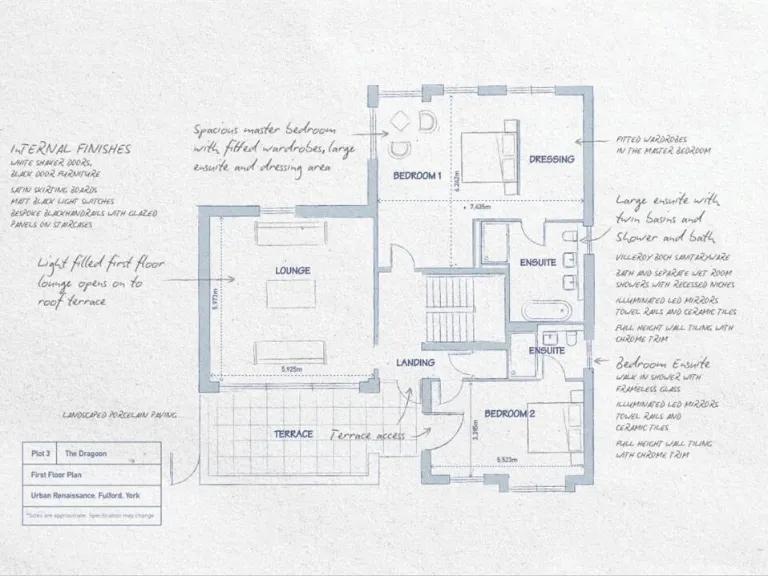 InTERNAL FINISHES
WHITE SHAKER DOORS,
BLACK DOOR FURNITURE
SATIN SKIRTING BOARDS
MATT BLACK LIGHT SWITCHES
BESPOKE BLACK HANDRAILS WITH GLAZED
PANELS ON STAIRCASES
Light filled first floor
lounge opens on to
roof terrace
LANDSCAPED PORCELAIN PAVING
Spacious master bedroom
with fitted wardrobes, large
ensuite and dressing area
BEDROOM 1
DRESSING
6.262m
7.435m
LOUNGE
5.973m
5.925m
ENSUITE
LANDING
ENSUITE
TERRACE
Terrace access
BEDROOM 2
5.523m
FITTED WARDROBES
IN THE MASTER BEDROOM
Large ensuite with
twin basins and
Shower and bath
VILLEROY BOCH SANITARYWARE
BATH AND SEPARATE WET ROOM
SHOWERS WITH RECESSED NICHES
ILLUMINATED LED MIRRORS
TOWEL RAILS AND CERAMIC TILES
FULL HEIGHT WALL TILING WITH
CHROME TRIM
Bedroom Ensuite
WALK IN SHOWER WITH
FRAMELESS GLASS
ILLUMINATED LED MIRRORS
TOWEL RAILS AND
CERAMIC TILES
FULL HEIGHT WALL TILING
WITH CHROME TRIM
Plot 3 The Dragoon
First Floor Plan
Urban Renaissance, Fulford, York
*Sizes are approximate. Specification may change